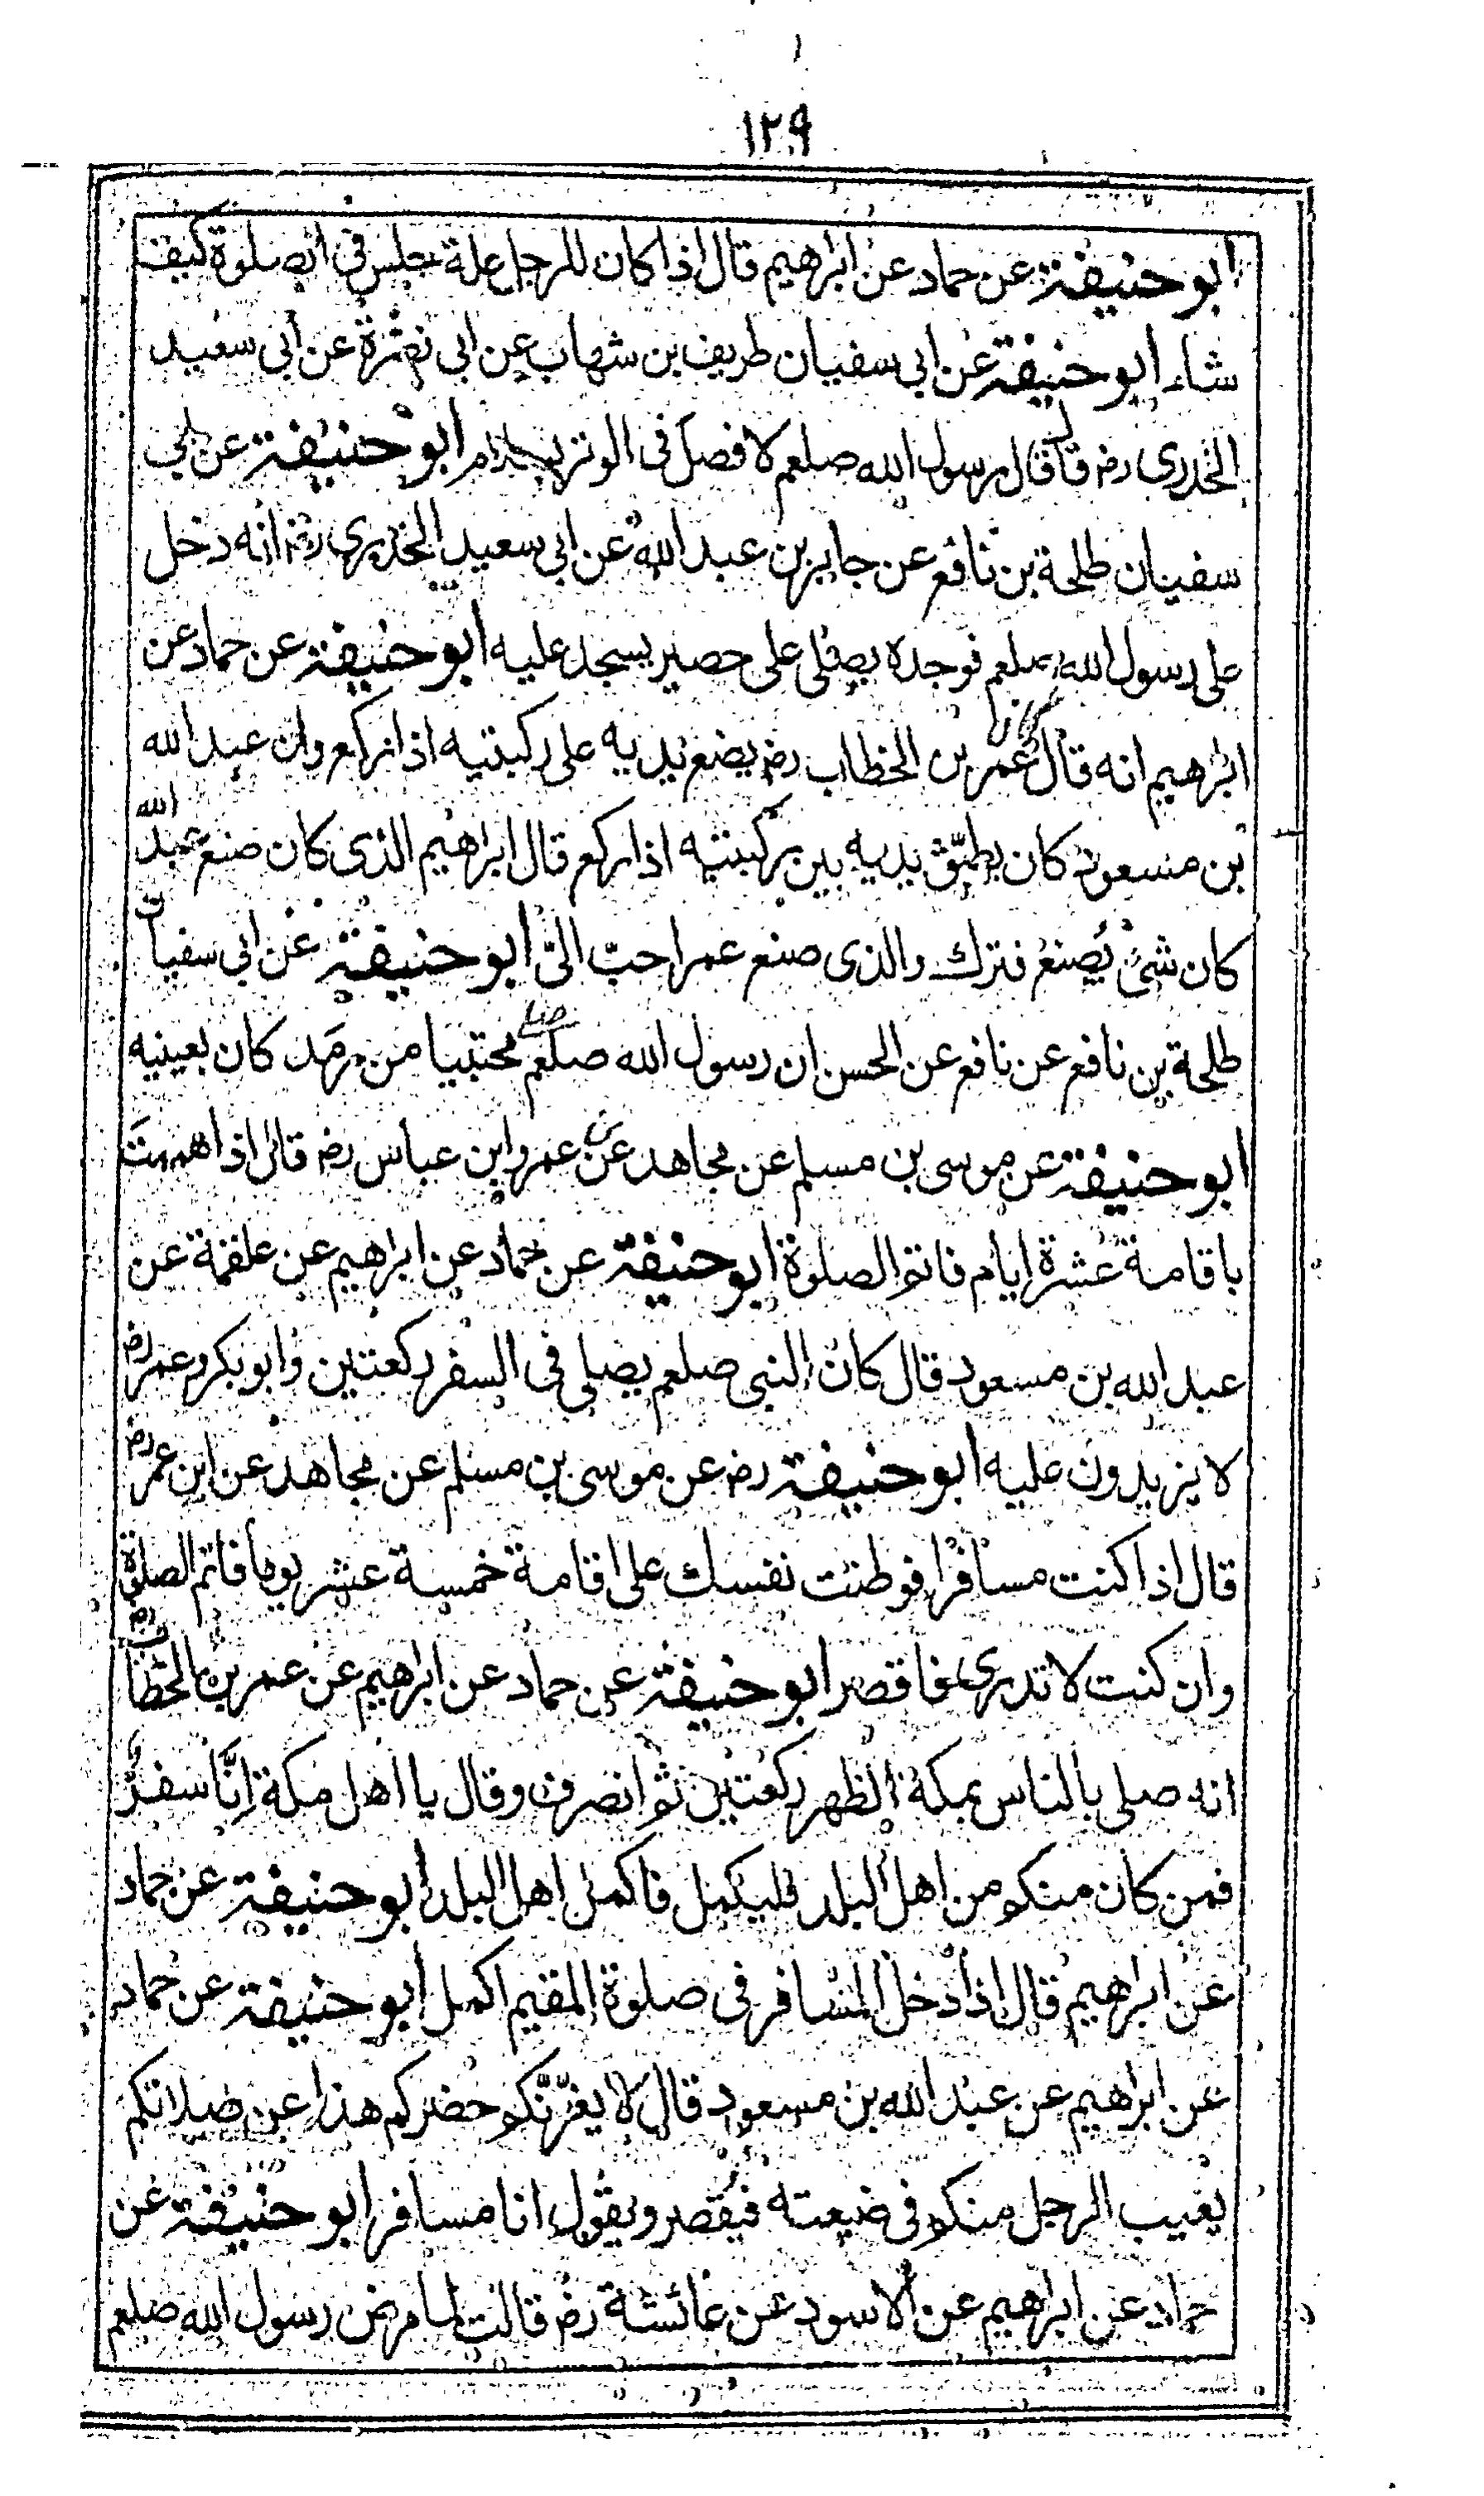 ١٢٩
ابو حنيفة عن حماد عن ابرهيم قال اذا كان للرجل علة جلس فى الصلوة كيف
شاء ابو حنيفة عن ابى سفيان طريف بن شهاب عن ابى نضرة عن ابى سعيد
الخدرى رض قال قال رسول الله صلعم لا فصل فى الوتر بسلام ابو حنيفة عن ابى
سفيان طلحة بن نافع عن جابر بن عبد الله عن ابى سعيد الخدرى رض انه دخل
على رسول الله صلعم فوجده يصلى على حصير يسجد عليه ابو حنيفة عن حماد عن
ابرهيم انه قال كان عمر بن الخطاب رض يضع يديه على ركبتيه اذا ركع وان عبد الله
بن مسعود كان يطبّق يديه بين ركبتيه اذا ركع قال ابراهيم الذى كان صنع عبد الله
كان شئ يصنع فترك والذى صنع عمر احبّ الىّ ابو حنيفة عن ابى سفيان
طلحة بن نافع عن نافع عن الحسن ان رسول الله صلعم صلى محتبيا من رمَد كان بعينيه
ابو حنيفة عن موسى بن مسلم عن مجاهد عن عمر وابن عباس رض قال اذا هممتَ
باقامة عشرة ايام فاتم الصلوة ابو حنيفة عن حماد عن ابرهيم عن علقمة عن
عبد الله بن مسعود قال كان النبى صلعم يصلى فى السفر ركعتين وابو بكر وعمر رض
لا يزيدون عليه ابو حنيفة رض عن موسى بن مسلم عن مجاهد عن ابن عمر رض
قال اذا كنت مسافرا فوطنت نفسك على اقامة خمسة عشر يوما فاتم الصلوة
وان كنت لا تدرى فاقصر ابو حنيفة عن حماد عن ابرهيم عن عمر بن الخطاب رض
انه صلى بالناس بمكة الظهر ركعتين ثم انصرف وقال يا اهل مكة اِنَّا سفرٌ
فمن كان منكم من اهل البلد فليكمل فاكمل اهل البلد ابو حنيفة عن حماد
عن ابرهيم قال اذا دخل المسافر فى صلوة المقيم اكمل ابو حنيفة عن حماد
عن ابرهيم عن عبد الله بن مسعود قال لا يغرّنّكم حضركم هذا عن صلاتكم
يغيب الرجل منكم فى ضيعته فيقصر ويقول انا مسافر ابو حنيفة عن
حماد عن ابرهيم عن الاسود عن عائشة رض قالت لما مرض رسول الله صلعم